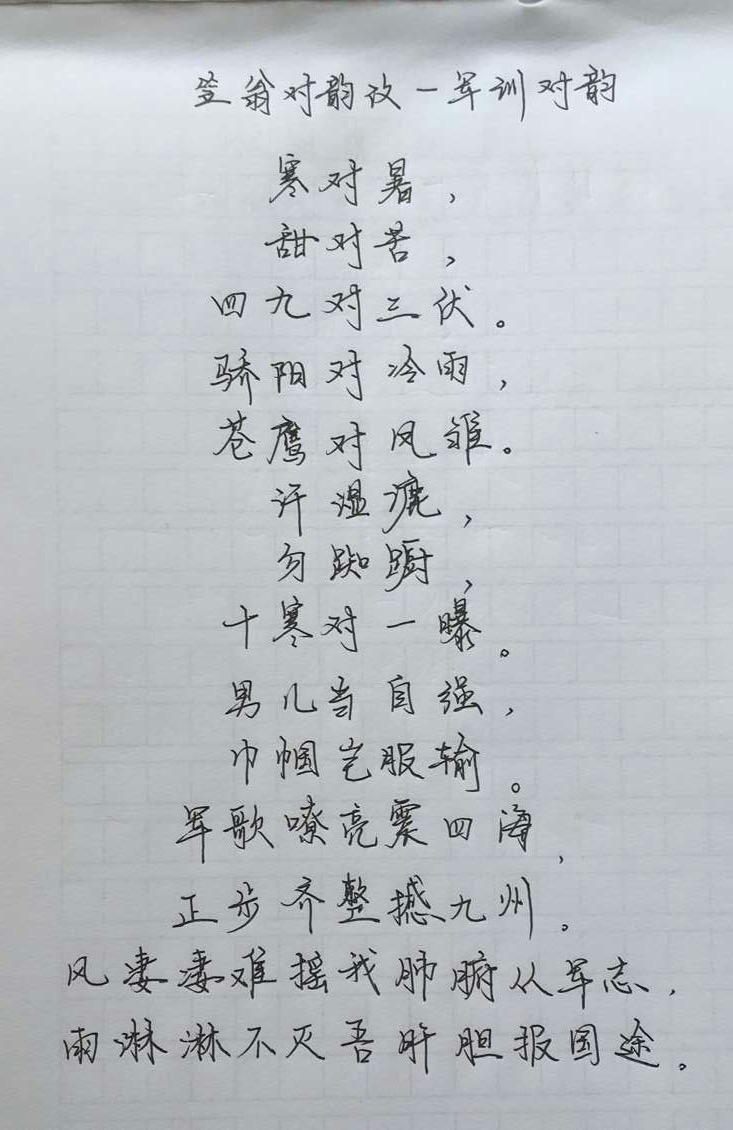 笠翁对韵改一军训对韵
寒对暑，
甜对苦，
四九对三伏。
骄阳对冷雨，
苍鹰对凤雏。
汗湿漉，
勿踟蹰，
十寒对一曝。
男儿当自强，
巾帼岂服输。
军歌嘹亮震四海，
正步齐整撼九州。
风凄凄难摇我肺腑从军志，
雨淋淋不灭吾肝胆报国途。